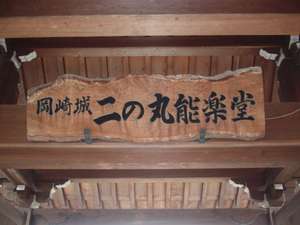 岡崎城 二の丸能楽堂